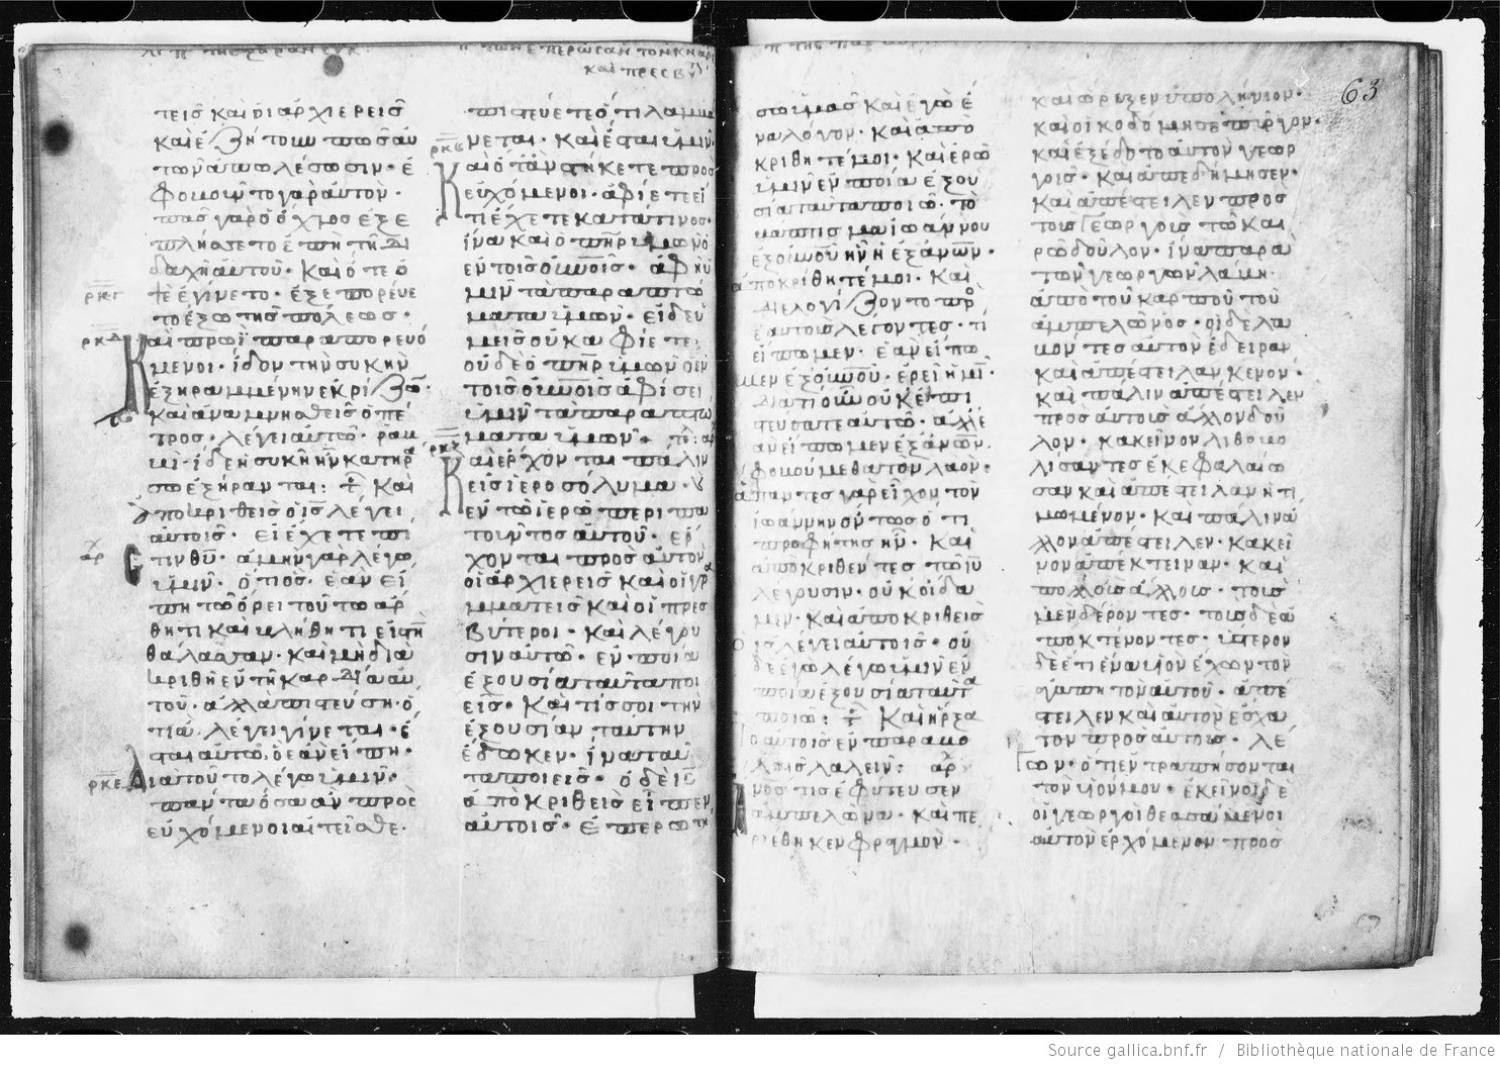 καὶ πρεσβ
τεῖς καὶ οἱ ἀρχιερεῖς
καὶ ἐζήτουν πῶς αὐ
τὸν ἀπωλέσωσιν· ἐ
φοβοῦντο γὰρ αὐτὸν·
πᾶς γὰρ ὁ ὄχλος ἐξε
πλήσσετο ἐπὶ τῇ δι
δαχῇ αὐτοῦ· Καὶ ὅτε ὀ
ψὲ ἐγίνετο· ἐξεπορεύε
το ἔξω τῆς πόλεως·
Καὶ πρωῒ παραπορευό
μενοι· ἴδον τὴν συκὴν
ἐξηραμμένην ἐκ ῥιζῶν·
καὶ ἀναμνησθεὶς ὁ πέ
τρος· λέγει αὐτῶ· ραβ
βι· ἴδε ἡ συκὴ ἣν κατηρά
σω ἐξήρανται: Καὶ
ἀποκριθεὶς ὁ ι̅ς̅ λέγει
αὐτοῖς· εἰ ἔχετε πί
στιν θ̅υ̅· ἀμὴν γὰρ λέγω
ὑμῖν· ὅτι ὃς ἐὰν εἴ
πη τῶ ὄρει τούτω ἄρ
θητι καὶ βλήθητι εἰς τὴν
θάλασσαν· καὶ μὴ δια
κριθῆ ἐν τῆ καρδία αὐ
τοῦ· ἀλλὰ πιστεύση· ὅ
τι ἃ λέγει γίνεται· ἔ
σται αὐτῶ, ὃ ἐὰν εἴπη·
ρκε Διὰ τοῦτο λέγω ὑμῖν·
πάντα ὅσα ἂν προσ
ευχόμενοι αἰτεῖσθε·
πιστεύετε ὅτι λαμβά
νεται· καὶ ἔσται ὑμῖν·
Καὶ ὅταν στήκετε προσ
ευχόμενοι· ἀφίετε εἴ
τι ἔχετε κατά τινος·
ἵνα καὶ ὁ π̅η̅ρ̅ ὑμῶν ὁ
ἐν τοῖς ο̅υ̅ν̅ο̅ι̅ς̅· ἀφῇ ὑ
μῖν τὰ παραπτώ
ματα ὑμῶν· εἰ δὲ ὑ
μεῖς οὐκ ἀφίετε·
οὐδὲ ὁ π̅η̅ρ̅ ὑμῶν ὁ ἐν
τοῖς ο̅υ̅ν̅ο̅ι̅ς̅ ἀφίσει
ὑμῖν τὰ παραπτώ
ματα ὑμῶν·
Καὶ ἔρχονται πάλιν
εἰς ἱεροσόλυμα·
ἐν τῶ ἱερῶ περιπα
τοῦντος αὐτοῦ· ἔρ
χονται πρὸς αὐτὸν
οἱ ἀρχιερεῖς καὶ οἱ γρα
μματεῖς καὶ οἱ πρεσ
βύτεροι· καὶ λέγου
σιν αὐτῶ· ἐν ποία
ἐξουσία ταῦτα ποι
εῖς· Καὶ τίς σοι τὴν
ἐξουσίαν ταύτην
ἔδωκεν· ἵνα ταῦ
τα ποιεῖς· ὁ δὲ ι̅ς̅
ἀποκριθεὶς εἶπεν
αὐτοῖς· ἐπερωτή
63
σω ὑμᾶς καὶ ἐγὼ ἕ
να λόγον· καὶ ἀπο
κρίθητέ μοι· καὶ ἐρῶ
ὑμῖν ἐν ποία ἐξου
σία ταῦτα ποιῶ· τὸ
βάπτισμα ἰωάννου
ἐξ ο̅υ̅ν̅ο̅υ̅ ἦν ἢ ἐξ α̅ν̅ω̅ν̅·
ἀποκρίθητέ μοι· Καὶ
διελογίζοντο πρὸς
ἑαυτοὺς λέγοντες· τί
εἴπωμεν· ἐὰν εἴπω
μεν ἐξ ο̅υ̅ν̅ο̅υ̅· ἐρεῖ ἡμῖν·
διατί οὖν οὐκ ἐπι
στεύσατε αὐτῶ· ἀλλ' ἐ
ὰν εἴπωμεν ἐξ α̅ν̅ω̅ν̅·
φοβούμεθα τὸν λαόν·
ἅπαντες γὰρ εἶχον τὸν
ἰωάννην ὄντως ὅτι
προφήτης ἦν· Καὶ
ἀποκριθέντες τῶ ι̅υ̅
λέγουσιν· οὐκ οἴδα
μεν· καὶ ἀποκριθεὶς
ὁ ι̅ς̅ λέγει αὐτοῖς· οὐ
δὲ ἐγὼ λέγω ὑμῖν ἐν
ποία ἐξουσία ταῦτα
ποιῶ: Καὶ ἤρξα
το αὐτοῖς ἐν παραβο
λαῖς λαλεῖν:
νος τις ἐφύτευσεν
ἀμπελῶνα· καὶ πε
ριέθηκεν φραγμὸν·
καὶ ὤρυξεν ὑπολήνιον·
καὶ οἰκοδόμησε πύργον·
καὶ ἐξέδοτο αὐτὸν γεωρ
γοῖς· καὶ ἀπεδήμησεν·
καὶ ἀπέστειλεν πρὸς
τοὺς γεωργοὺς τῶ και
ρῶ δοῦλον· ἵνα παρὰ
τῶν γεωργῶν λάβη
ἀπὸ τοῦ καρποῦ τοῦ
ἀμπελῶνος· οἱ δὲ λα
βόντες αὐτὸν ἔδειραν
καὶ ἀπέστειλαν κενόν·
καὶ πάλιν ἀπέστειλεν
πρὸς αὐτοὺς ἄλλον δοῦ
λον· κἀκεῖνον λιθοβο
λίσαντες ἐκεφαλαίω
σαν καὶ ἀπέστειλαν ἠτι
μωμένον· Καὶ πάλιν ἄ
λλον ἀπέστειλεν· κἀκεῖ
νον ἀπέκτειναν· καὶ
πολλοὺς ἄλλους· τοὺς
μὲν δέροντες· τοὺς δὲ ἀ
ποκτένοντες· ὕστερον
δὲ ἔτι ἕνα υἱὸν ἔχων τὸν
ἀγαπητὸν αὐτοῦ· ἀπέ
στειλεν καὶ αὐτὸν ἔσχα
τον πρὸς αὐτοὺς· λέ
γων· ὅτι ἐντραπήσονται
τὸν υἱόν μου· ἐκεῖνοι δὲ
οἱ γεωργοὶ θεασάμενοι
αὐτὸν ἐρχόμενον πρὸς
Source gallica.bnf.fr / Bibliothèque nationale de France